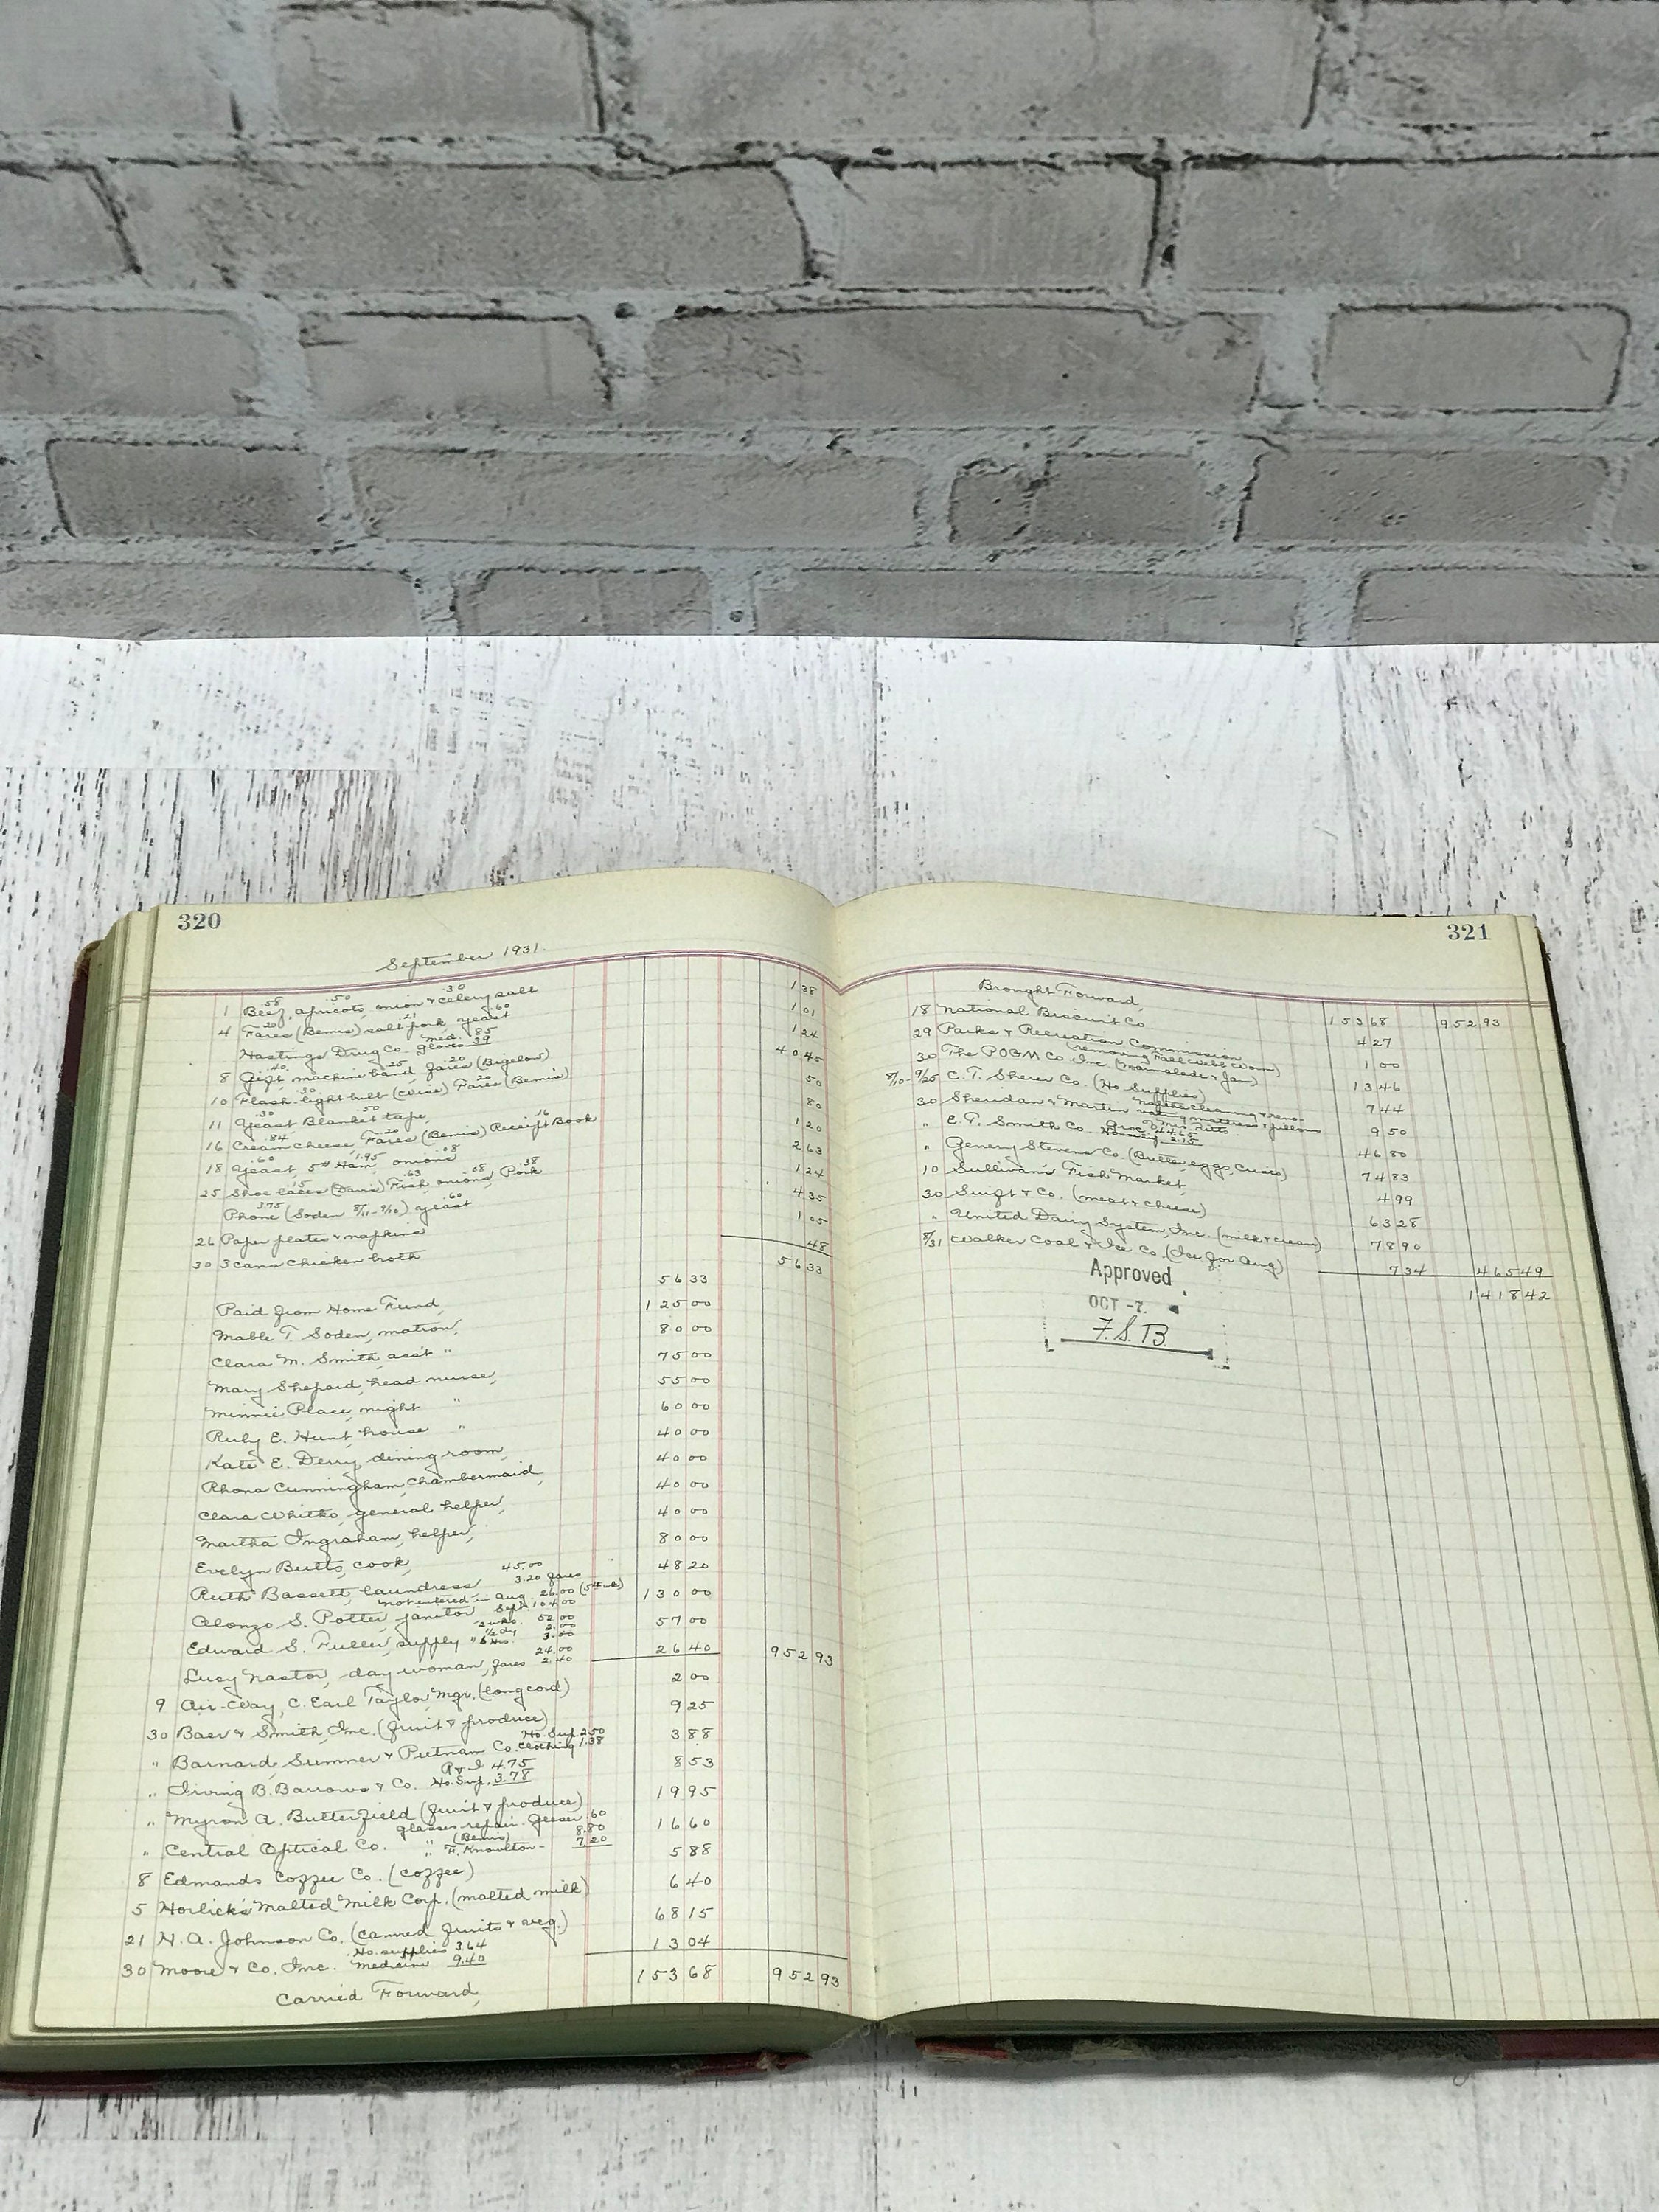 320
September 1931.
.58 .50 .30
1 Beef, apricots, onion & celery salt 1 38
.20 .21 .60
4 Fares (Bemis) salt pork, yeast 1 01
med. .85
Hastings Drug Co. gloves .39 1 24
.40 .25 .20
8 Gift, machine band, fares (Bigelow) 40 45
.30 .20
10 Flash-light bulb (Wise) Fares (Bemis) 50
.30 .50
11 Yeast, Blanket tape, 80
.84 .20 .16
16 Cream cheese, Fares (Bemis) Receipt Book 1 20
.60 1.95 .08
18 Yeast, 5# Ham, onions 2 63
.15 .63 .08 .38
25 Shoe laces (Davis) Fish, onions, Pork 1 24
3.75 .60
Phone (Soden 8/11-9/10) yeast 4 35
26 Paper plates & napkins 1 05
30 3 cans chicken broth 48
56 33
Paid from Home Fund, 56 33
Mable T. Soden, matron, 125 00
Clara M. Smith, ass't " 80 00
Mary Shepard, head nurse, 75 00
Minnie Place, night " 55 00
Ruby E. Hunt, house " 60 00
Kate E. Derry, dining room, 40 00
Rhona Cunningham, chambermaid, 40 00
Clara Whitko, general helper, 40 00
Martha Ingraham, helper, 40 00
Evelyn Butts, cook, 80 00
45.00
Ruth Bassett, laundress 3.20 fares 48 20
not entered in Aug. 26.00 (5th wk)
Alonzo S. Potter, janitor Sept. 104.00 130 00
2 wks. 52.00
1/2 dy 2.00
Edward S. Fuller, supply " 6 hrs. 3.00 57 00
24.00
Lucy Nastor, day woman, fares 2.40 26 40 952 93
9 Air-Way, C. Earl Taylor, Mgr. (long cord) 2 00
30 Baer & Smith, Inc. (fruit & produce) 9 25
Ho. Sup. 2.50
" Barnard, Sumner & Putnam Co. clothing 1.38 3 88
R & I 4.75
" Irving B. Barrows & Co. Ho. Sup. 3.78 8 53
" Myron A. Butterfield (fruit & produce) 19 95
glasses repair - Geeser .60
" (Bemis) 8.80
" Central Optical Co. " F. Knowlton - 7.20 16 60
8 Edmands Coffee Co. (coffee) 5 88
5 Horlick's Malted Milk Corp. (malted milk) 6 40
21 H. A. Johnson Co. (canned fruits & veg.) 68 15
Ho. supplies 3.64
30 Moore & Co. Inc. medicine 9.40 13 04
Carried Forward, 153 68 952 93
321
Brought Forward, 153 68 952 93
18 National Biscuit Co. 4 27
29 Parks & Recreation Commission
(removing Fall Web Worm) 1 00
30 The POGM Co. Inc. (marmalade & jam) 13 46
8/10-9/25 C. T. Sherer Co. (Ho. Supplies) 7 44
30 Sheridan & Martin
mattress & pillows 9 50
Groc. 44.65
" E. T. Smith Co. 2.15 46 80
" Genery Stevens Co. (Butter, eggs, Crisco) 74 83
10 Sullivan's Fish Market, 4 99
30 Swift & Co. (meat & cheese) 63 28
" United Dairy System, Inc. (milk & cream) 78 90
8/31 Walker Coal & Ice Co. (Ice for Aug) 7 34 465 49
1418 42
Approved
OCT -7.
F.S.B.